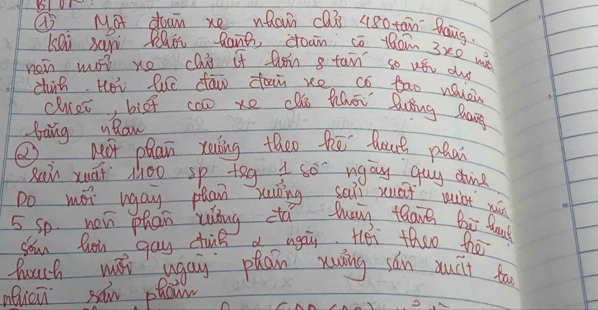 ① Một đoàn xe nhận chở 480 tấn hàng.
khi sắp khởi hành, đoàn có thêm 3 xe nữa
nên mỗi xe chở ít hơn 8 tấn so với dự
định. Hỏi lúc đầu đoàn xe có bao nhiêu
chiếc, biết các xe chở khối lượng hàng
bằng nhau
② Một phân xưởng theo kế hoạch phải
sản xuất 1100 sp tng 1 số ngày quy định
Do mỗi ngày phân xưởng sản xuất vượt mức
5 sp. nên phân xưởng đã hoàn thành kế hoạch
sớm hơn quy định 2 ngày. Hỏi theo kế
hoạch mỗi ngày phân xưởng sản xuất bao
nhiêu sản phẩm